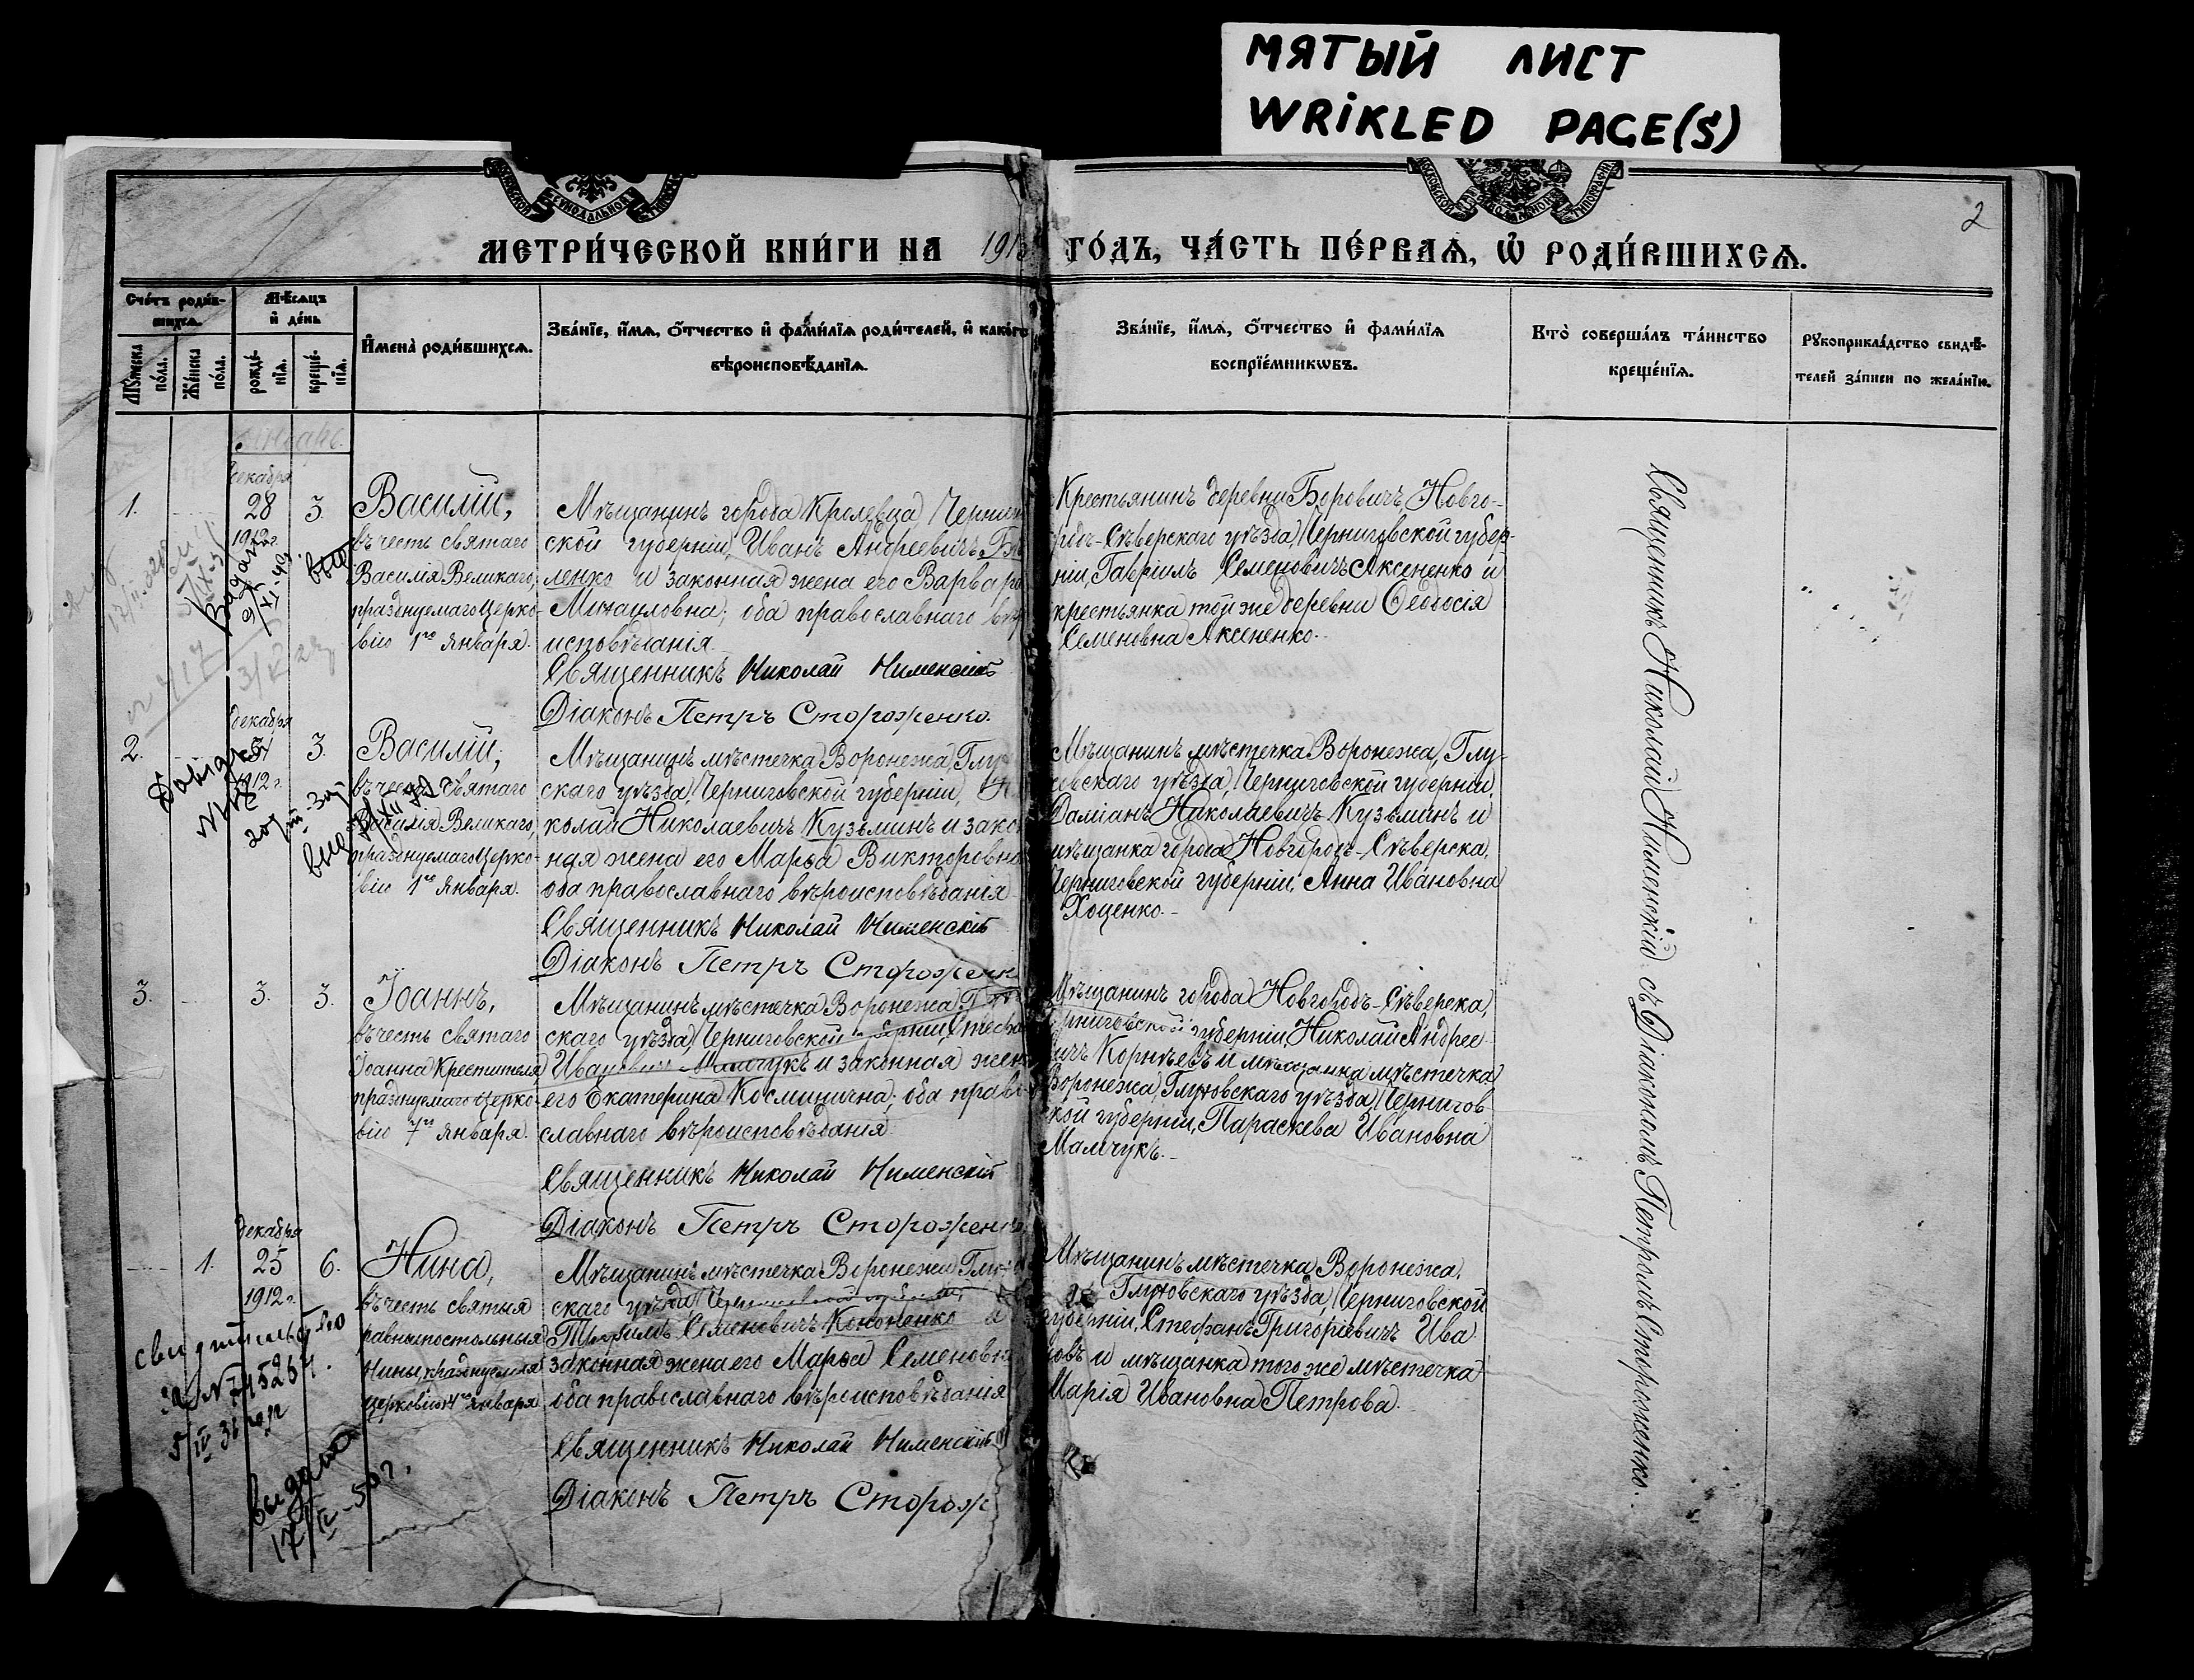 МЯТЫЙ ЛИСТ
WRIKLED PAGE(S)
2
МЕТРИ́ЧЕСКОЙ КНИ́ГИ НА 1913 ГО́ДЪ, ЧА́СТЬ ПЕ́РВАѦ, Ѽ РОДИ́ВШИХСѦ.
Сче́тъ роди́в-
шихсѧ.
Мꙋ́жеска по́ла.
Же́нска по́ла.
Мѣ́сѧцъ
и҆ де́нь
рожде́-
нїѧ.
креще́-
нїѧ.
И҆мена̀ роди́вшихсѧ.
Зва́нїе, и҆́мѧ, ѻ҆́тчество и҆ фами́лїѧ роди́телей, и҆ како́гѡ
вѣроисповѣ́данїѧ.
Зва́нїе, и҆́мѧ, ѻ҆́тчество и҆ фами́лїѧ
воспрїе́мникѡвъ.
Кто̀ соверша́лъ та́инство
креще́нїѧ.
Рꙋкоприкла́дство свидѣ́-
телей за́писи по жела́нїю.
Январь.
декабря
1.
28
1912г.
3.
Василій,
въ честь святаго
Василія Великаго,
празднуемаго Церко-
вію 1го Января.
Мѣщанинъ города Кролевца, Чернигов
ской губерніи, Иванъ Андреевичъ
ленко и законная жена его Варвара
Михаиловна; оба православнаго вѣро
исповѣданія.
Священникъ Николай Нименскій
Діаконъ Петръ Стороженко.
Крестьянинъ деревни Боровичъ, Новго-
родъ-Сѣверскаго уѣзда, Черниговской губер-
ніи, Гавріилъ Семеновичъ Аксененко и
крестьянка той же деревни Ѳеодосія
Семеновна Аксененко.
декабря
2.
31
1912г.
3.
Василій,
въ честь Святаго
Василія Великаго,
празднуемаго Церко-
вію 1го Января.
Мѣщанинъ мѣстечка Воронежа, Глу
скаго уѣзда, Черниговской губерніи, Ни
колай Николаевичъ Кузьминъ и закон
ная жена его Марѳа Викторовна
оба православнаго вѣроисповѣданія.
Священникъ Николай Нименскій
Діаконъ Петръ Стороженко
Мѣщанинъ мѣстечка Воронежа, Глу-
ховскаго уѣзда, Черниговской губерніи,
Даміанъ Николаевичъ Кузьминъ и
мѣщанка города Новгородъ-Сѣверска,
Черниговской губерніи, Анна Ивановна
Хоценко.
3.
3.
3.
Іоаннъ,
въ честь святаго
Іоанна Крестителя,
празднуемаго Церко-
вію 7го Января.
Мѣщанинъ мѣстечка Воронежа,
скаго уѣзда, Черниговской губерніи, Стефа
Ивановичъ Мамчукъ и законная жена
его Екатерина Косминична; оба право
славнаго вѣроисповѣданія.
Священникъ Николай Нименскій
Діаконъ Петръ Стороженко
Мѣщанинъ города Новгородъ-Сѣверска,
Черниговской губерніи, Николай Андрее
вичъ Корнѣевъ и мѣщанка мѣстечка
Воронежа, Глуховскаго уѣзда, Чернигов
ской губерніи, Параскева Ивановна
Мамчукъ.
декабря
1.
25
1912г.
6.
Нина,
въ честь святыя
равноапостольныя
Нины, празднуемыя
Церковію 14го Января
Мѣщанинъ мѣстечка Воронежа Глухов
скаго уѣзда, Черниговской губерніи
Трофимъ Семеновичъ Кононенко и
законная жена его Марѳа Семеновна
оба православнаго вѣроисповѣданія
Священникъ Николай Нименскій
Діаконъ Петръ Сторож
Мѣщанинъ мѣстечка Воронежа,
Глуховскаго уѣзда, Черниговской
губерніи, Стефанъ Григоріевичъ Ива
новъ и мѣщанка того же мѣстечка
Марія Ивановна Петрова.
Священникъ Николай Нименскій съ Діакономъ Петромъ Стороженко.
выдано
17/IV-50г.